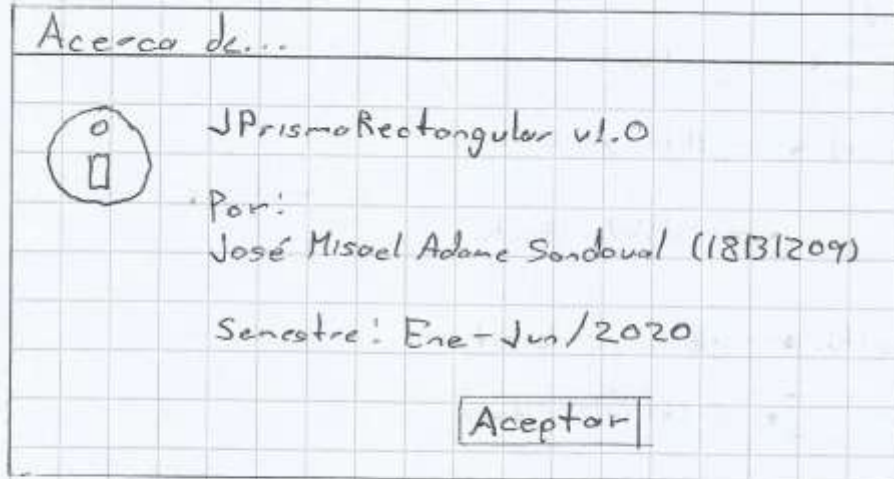 Acerca de...
JPrismaRectangular v1.0
Por:
José Misael Adame Sandoval (18131209)
Semestre: Ene-Jun/2020
Aceptar